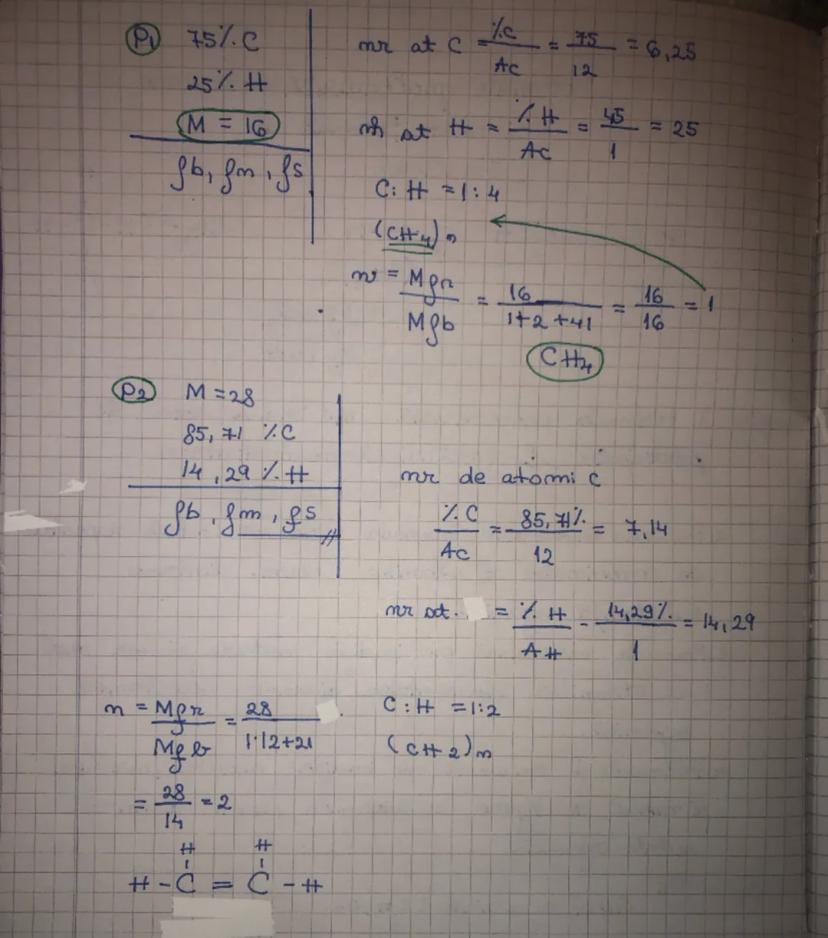 P1 75% C
25% H
M = 16
fb, fm, fs
nr at C = %C / Ac = 75 / 12 = 6,25
nr at H = % H / Ac = 45 / 1 = 25
C: H = 1: 4
(CH4)n
n = Mgr / Mfb = 16 / 1+2 +41 = 16 / 16 = 1
CH4
P2 M = 28
85,71 %C
14,29 % H
fb, fm, fs
nr de atomi C
%C / Ac = 85,71% / 12 = 7,14
nr at. = % H / AH - 14,29% / 1 = 14,29
C:H = 1:2
(CH2)n
n = Mgr / Mfb = 28 / 1·12+21
= 28 / 14 = 2
H H
H - C = C - H